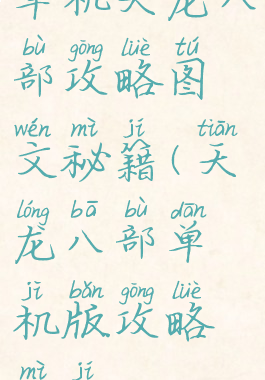 单机天龙八
bù gōng lüè tú
部攻略图
wén mì jí tiān
文秘籍(天
lóng bā bù dān
龙八部单
jī bǎn gōng lüè
机版攻略
mì jí